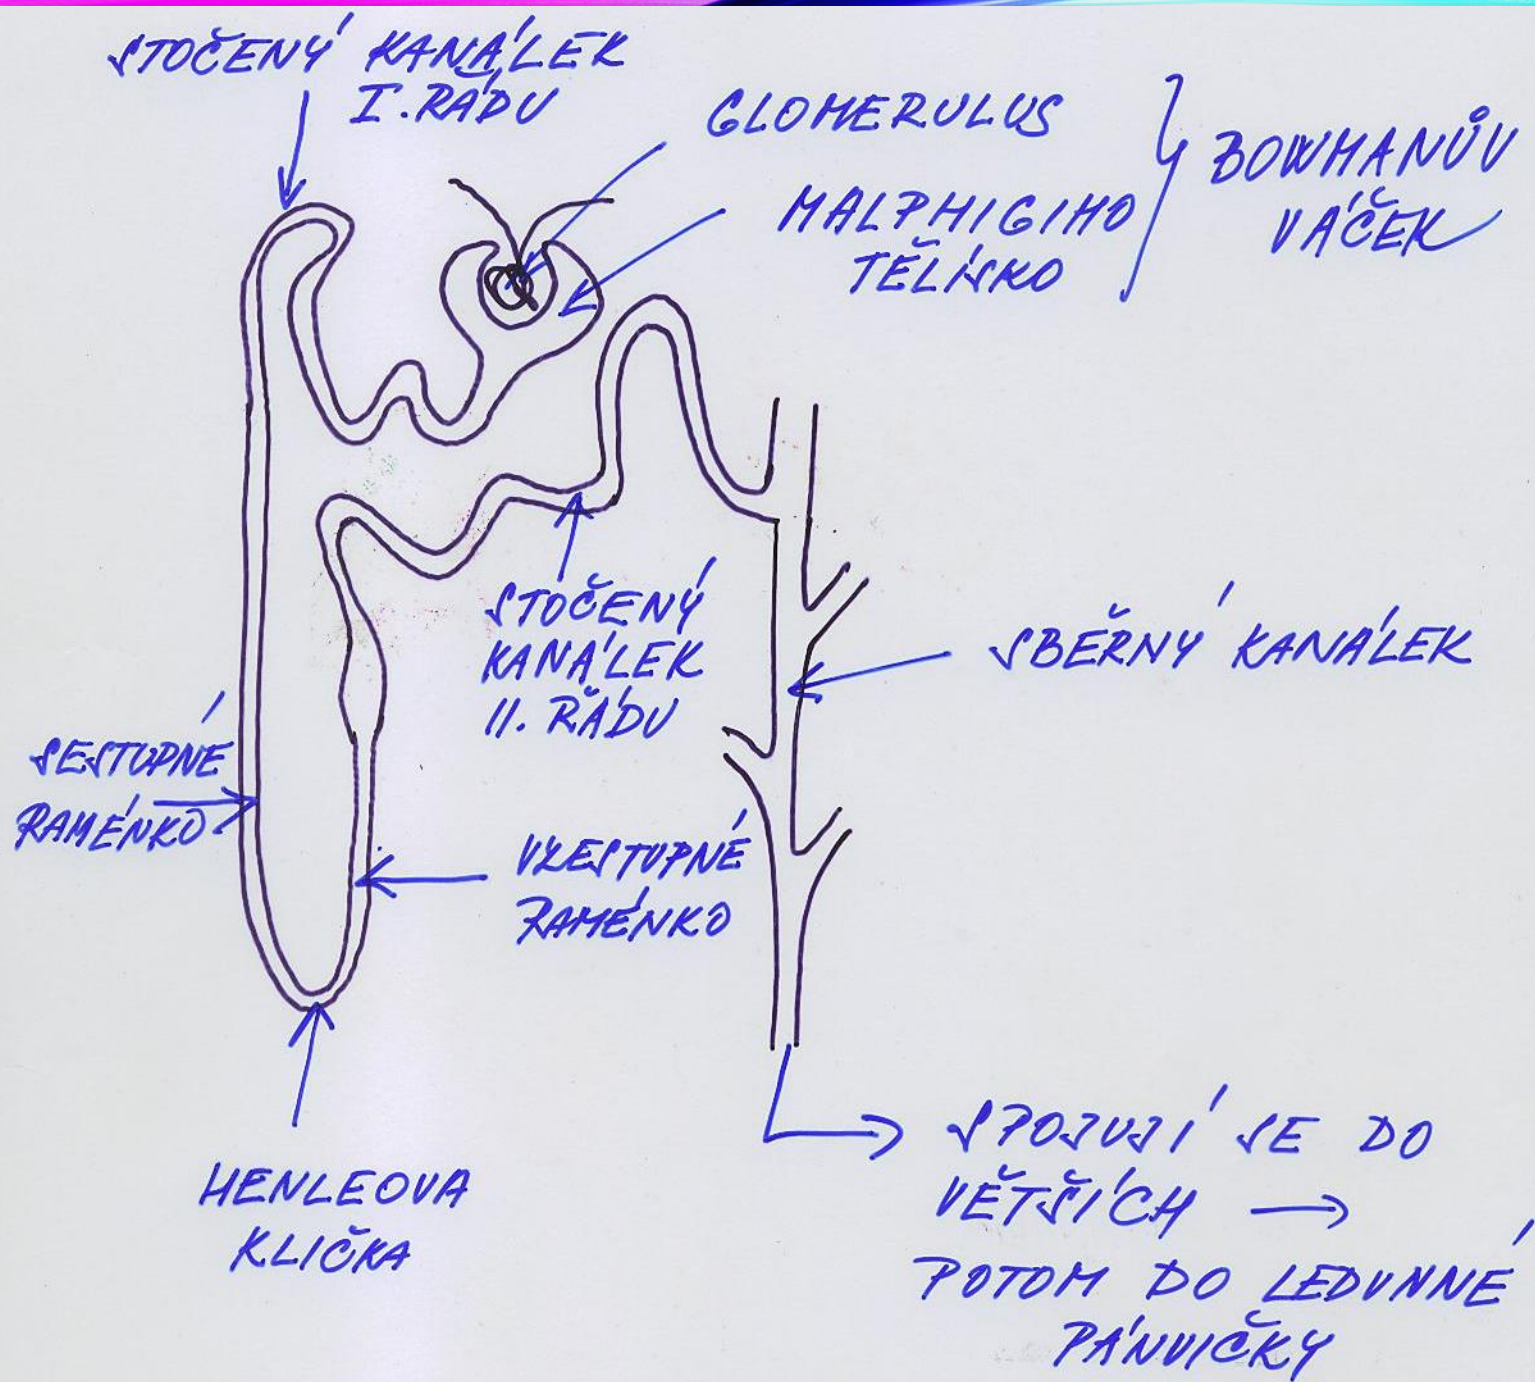 STOČENÝ KANÁLEK
I. ŘÁDU
GLOMERULUS
MALPHIGIHO
TĚLÍSKO
BOWMANŮV
VÁČEK
STOČENÝ
KANÁLEK
II. ŘÁDU
SBĚRNÝ KANÁLEK
SESTUPNÉ
RAMÉNKO
VZESTUPNÉ
RAMÉNKO
HENLEOVA
KLIČKA
SPOJUJÍ SE DO
VĚTŠÍCH →
POTOM DO LEDVNNÉ
PÁNVIČKY